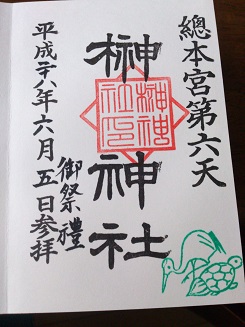 總本宮第六天
榊神社
榊神社之印
御祭禮
平成廿八年六月五日参拝